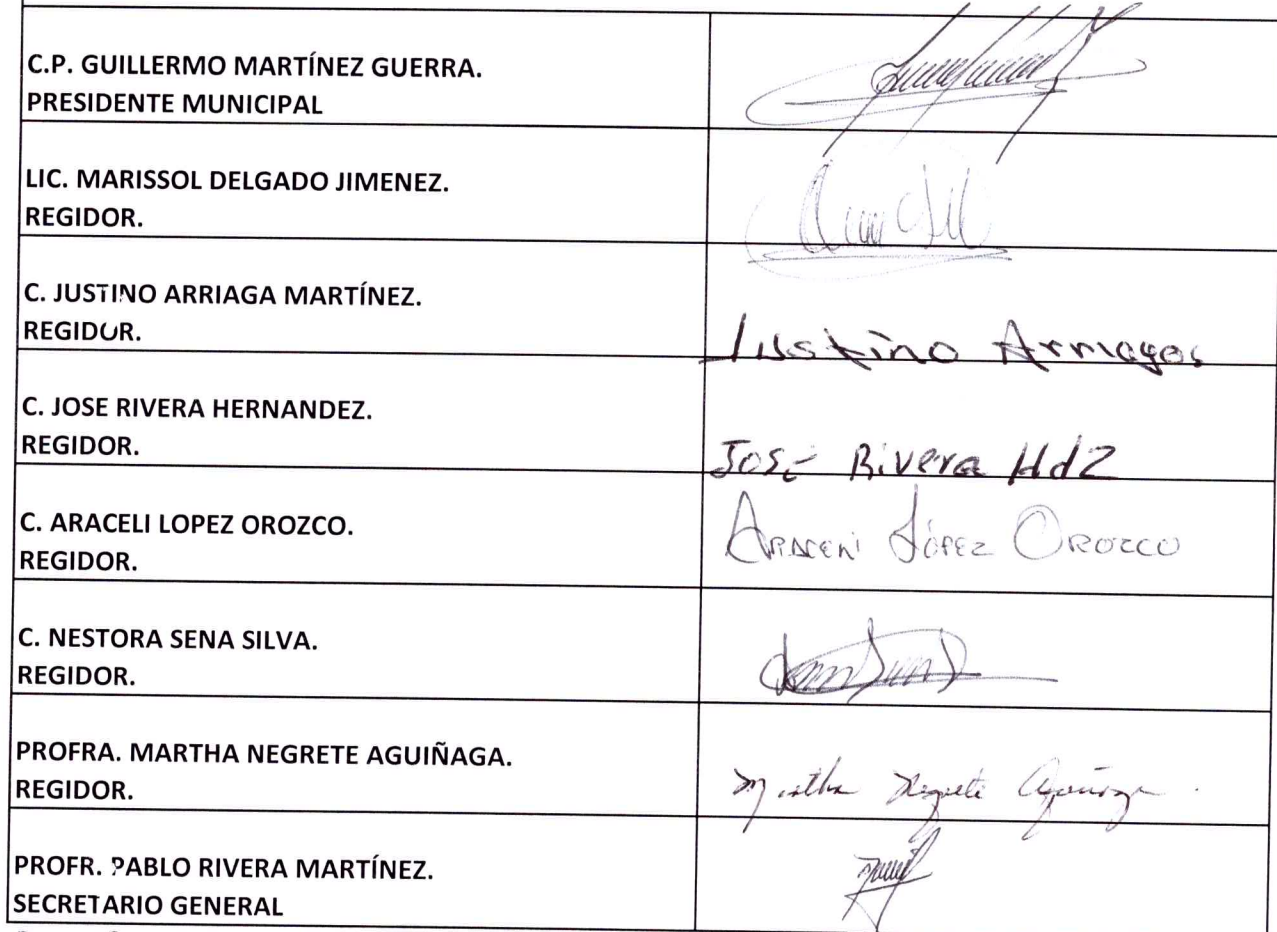 C.P. GUILLERMO MARTÍNEZ GUERRA.
PRESIDENTE MUNICIPAL
LIC. MARISSOL DELGADO JIMENEZ.
REGIDOR.
C. JUSTINO ARRIAGA MARTÍNEZ.
REGIDOR.
Justino Arriaga
C. JOSE RIVERA HERNANDEZ.
REGIDOR.
José Rivera Hdz
C. ARACELI LOPEZ OROZCO.
REGIDOR.
ARACELI LÓPEZ OROZCO
C. NESTORA SENA SILVA.
REGIDOR.
PROFRA. MARTHA NEGRETE AGUIÑAGA.
REGIDOR.
Martha Negrete Aguiñaga
PROFR. PABLO RIVERA MARTÍNEZ.
SECRETARIO GENERAL